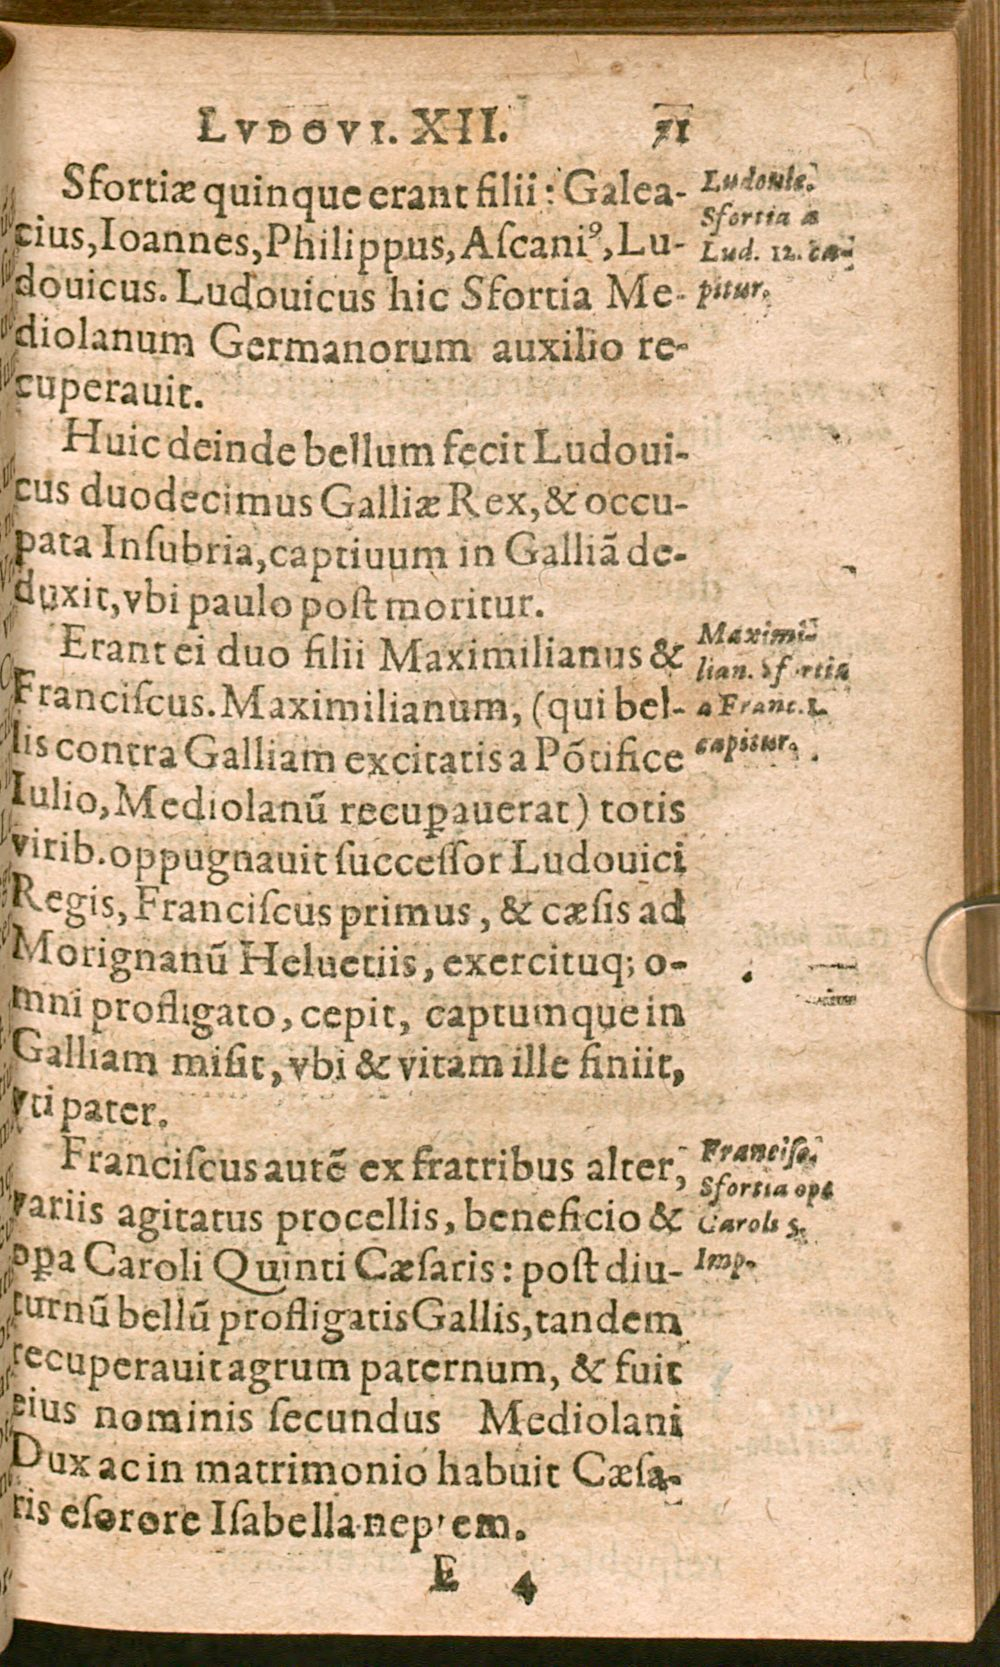 LVDOVI. XII. 71
Sfortiæ quinque erant filii: Galea-
cius, Ioannes, Philippus, Aſcaniꝰ, Lu-
douicus. Ludouicus hic Sfortia Me-
diolanum Germanorum auxilio re-
cuperauit.
Huic deinde bellum fecit Ludoui-
cus duodecimus Galliæ Rex, & occu-
pata Inſubria, captiuum in Galliã de-
duxit, vbi paulo poſt moritur.
Erant ei duo filii Maximilianus &
Franciſcus. Maximilianum, (qui bel-
lis contra Galliam excitatis a Põtifice
Iulio, Mediolanũ recuꝑauerat) totis
virib. oppugnauit ſucceſſor Ludouici
Regis, Franciſcus primus, & cæſis ad
Morignanũ Heluetiis, exercituq; o-
mni profligato, cepit, captumque in
Galliam miſit, vbi & vitam ille finiit,
vti pater.
Franciſcus autẽ ex fratribus alter,
variis agitatus procellis, beneficio &
oꝑa Caroli Quinti Cæſaris: poſt diu-
turnũ bellũ profligatis Gallis, tandem
recuperauit agrum paternum, & fuit
eius nominis ſecundus Mediolani
Dux ac in matrimonio habuit Cæſa-
ris eſorore Iſabella neptem.
E 4
Ludouic.
Sfortia a
Lud. 12. ca-
pitur.
Maximi-
lian. Sfortia
a Franc. 1.
capitur.
Franciſc.
Sfortia ope
Caroli 5.
Imp.